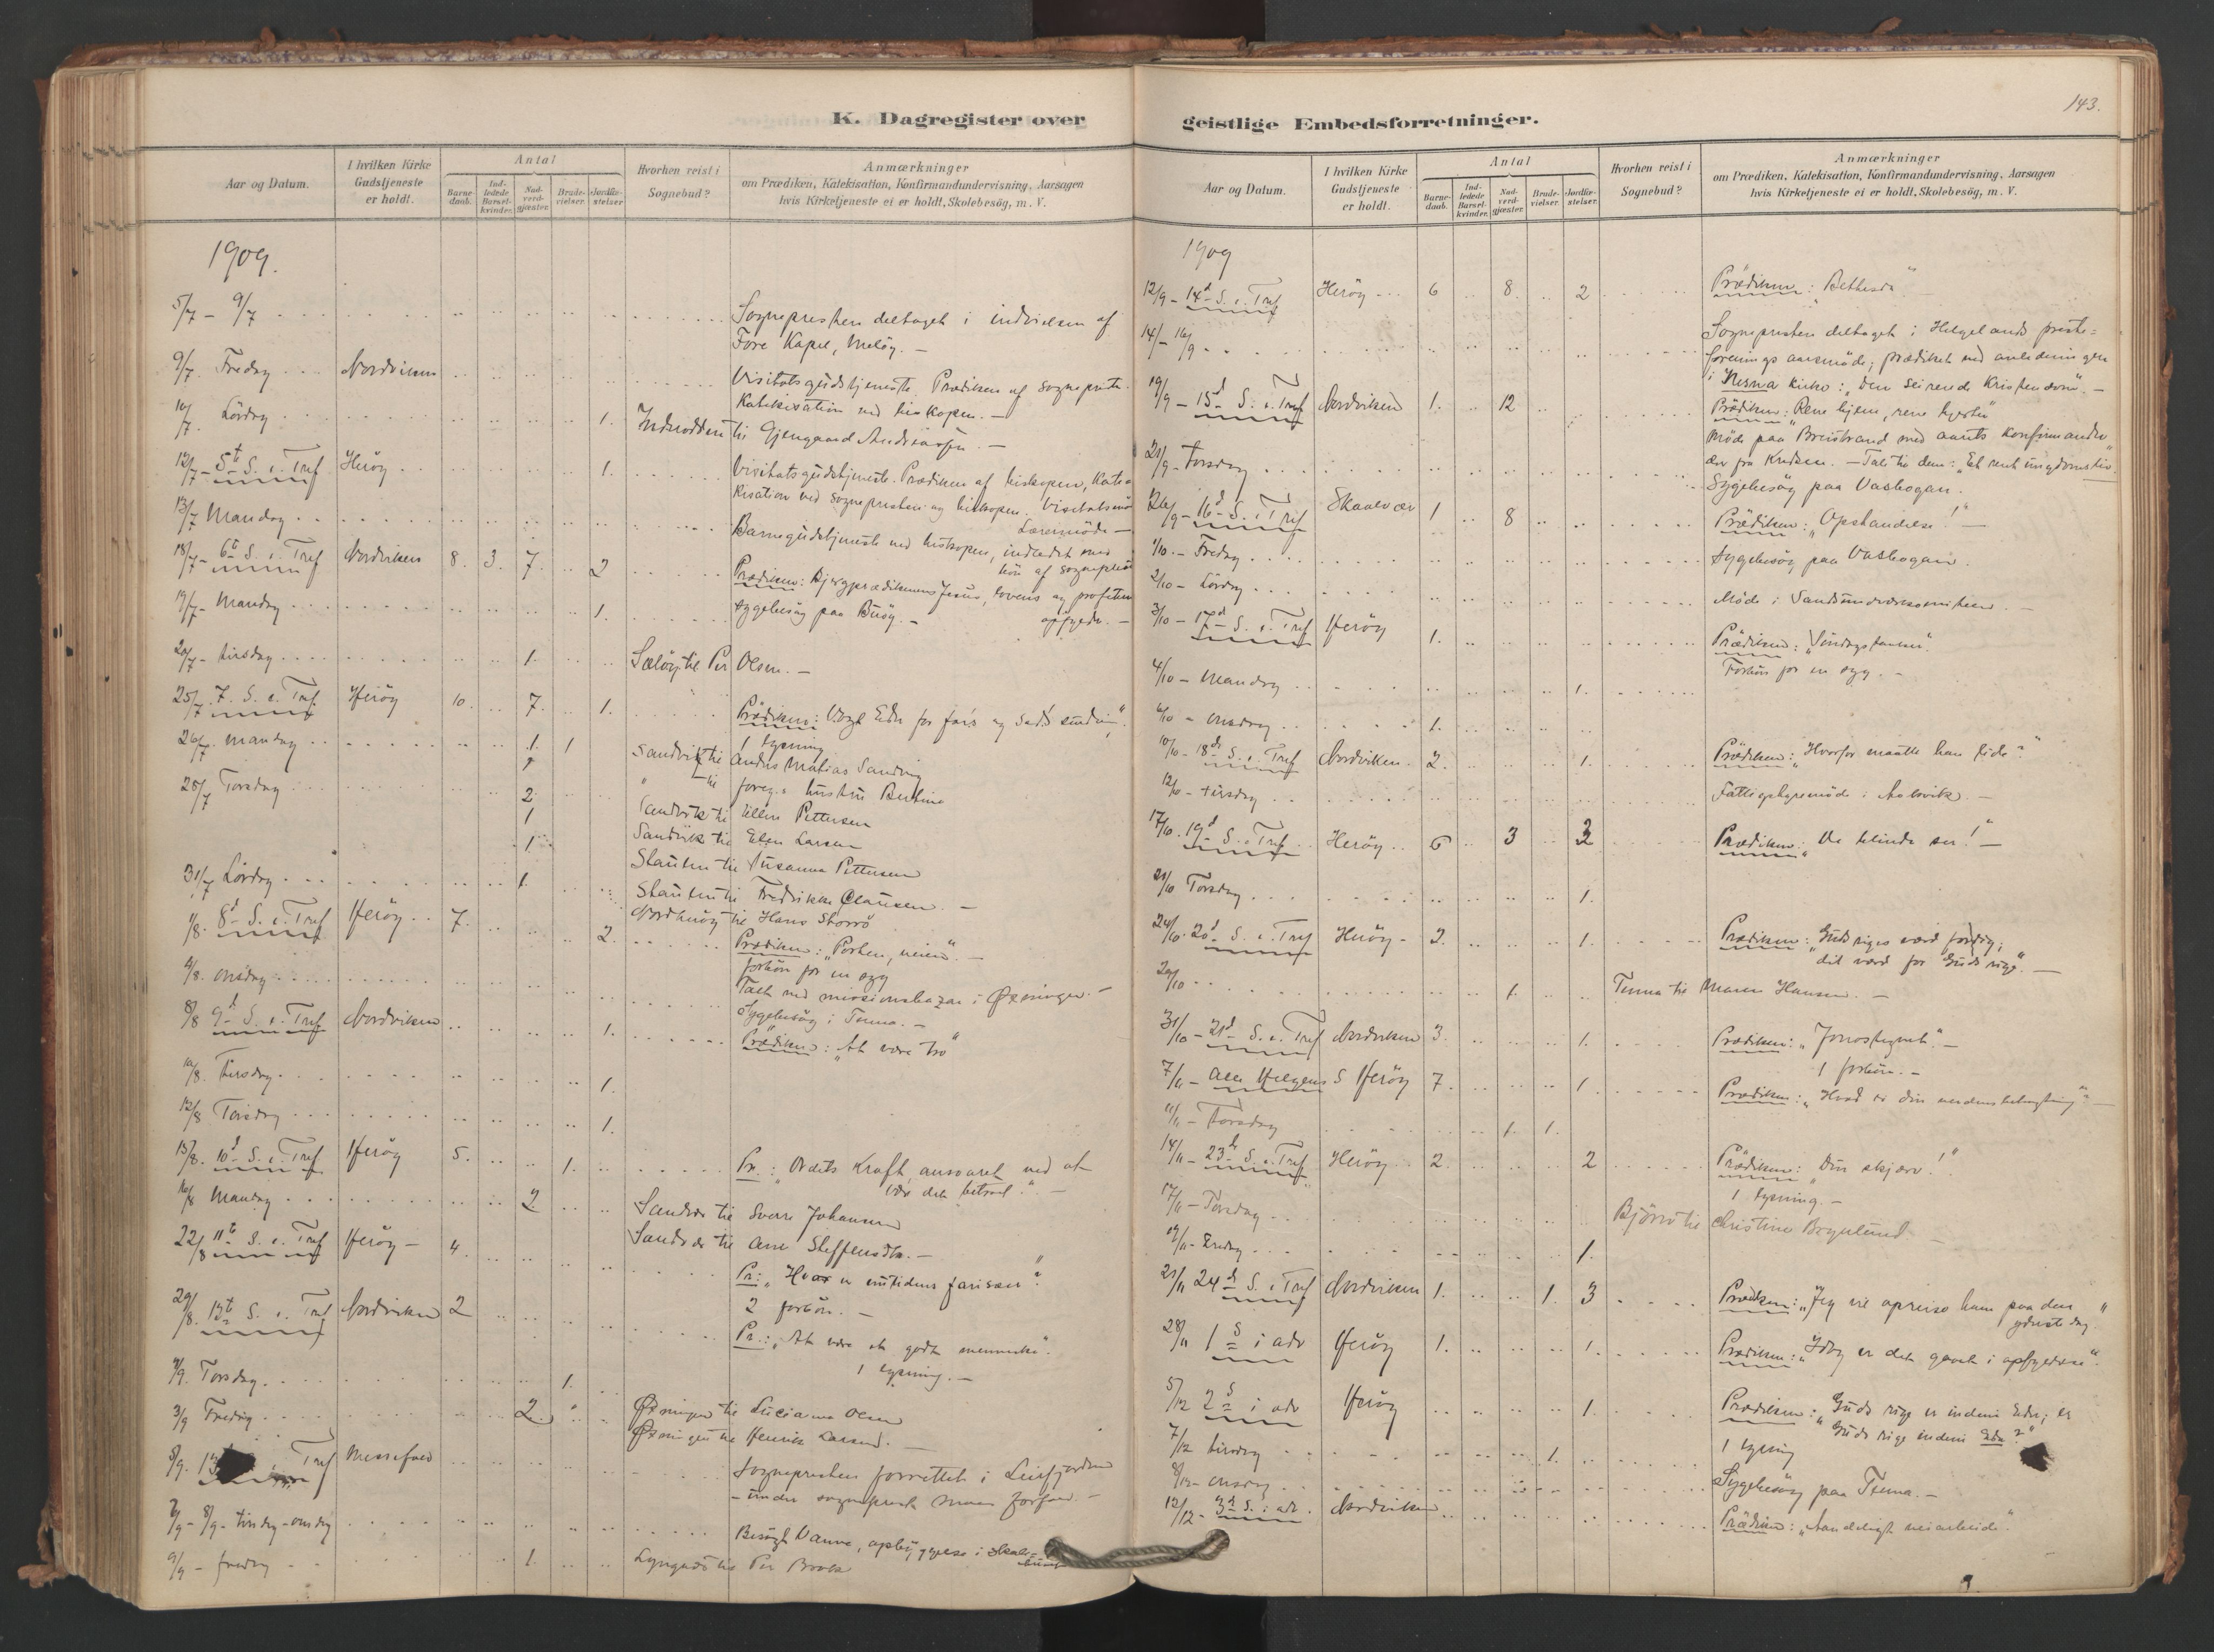 K. Dagregister over
Aar og Datum.
I hvilken Kirke Gudstjeneste er holdt.
Antal
Barnedaab.
Indledede Barselkvinder.
Nadverdgjæster.
Brudevielser.
Jordfæstelser
Hvorhen reist i Sognebud?
Anmærkninger
om Prædiken, Katekisation, Konfirmandundervisning, Aarsagen
hvis Kirketjeneste ei er holdt, Skolebesög, m. V.
1909.
5/7 – 9/7 Sognepresten deltaget i indvielsen af
Före Kapel, Melöy. –
9/7. Fredag Nordviken Visitatsgudstjeneste. Prædiken af sogneprest.
Katekisation ved biskopen. –
10/7. Lördag 1. til Gjengaard Andreassen. –
12/7 – 5te S. e. Tref Heröy 1. Visitatsgudstjeneste. Prædiken af biskopen, Kate-
kisation ved sognepresten og biskopen.
Læremöde –
13/7 Mandag Barnegudstjeneste ved biskopen, indledet med
bön af
18/7 – 6te S. e. Tref Nordviken 8. 3. 7. 2 Prædiken: Bjergprædikenens Jesus, lovens og profeters
opfyder. –
19/7 – Mandag 1. Sygebesög paa Buöy. –
20/7 – tirsdag 1. Selöy til Per Olsen. –
25/7 7. S. e. Tref. Heröy 10. 7. 1. Prædiken:
1 lysning
26/7. Mandag 1. 1 Sandvik til Anders Matias Sandvig
" til foreg.s hustru Bertine
28/7 Torsdag 2. Sandvik til Ellen Pettersen
1 Sandvik til Elen Larsen
1 Stauten til Susanna Pettersen
31/7 Lördag 1. Stauten til Fredrikke Clausen. –
Nordhuöy til Hans Storrö
1/8. 8d S. e. Tref Heröy 7. 2. Prædiken: "Porten, veien". –
forbön for en syg
4/8. Onsdag Talt ved missionsbazar i Öxningen. –
Sygebesög i Tenna. –
8/8 9d S. e. Tref Nordviken 1. Prædiken: "At være tro"
10/8. Tirsdag 1.
12/8 Torsdag 1.
15/8. 10d S. e. Tref Heröy 5. 1. Pr.: "Ordets Kraft, ansvaret ved at
16/8 Mandag 2. Sandvær til Sverre Johansen
Sandvær til Ane Steffensdtr. –
22/8 11te S. e. Tref Heröy – 4. Pr.: "Hvor er nutidens farisæer"?
2 forbön. –
29/8. 12te S. e. Tref Nordviken 2 Pr.: "At være et godt menneske".
1 lysning. –
2/9. Torsdag. 1.
3/9 Fredag 2. Öxningen til Luciana Olsen
Öxningen til Henrik Larsen. –
5/9. Tref Messefald Sognepresten forrettet i Leirfjorden
– under sogneprest
7/9 – 8/9 – tirsdag – onsdag Besögt
9/9 – fredag 1. Lyngvær til Per Brook
143.
geistlige Embedsforretninger.
Aar og Datum.
I hvilken Kirke Gudstjeneste er holdt.
Antal
Barnedaab.
Indledede Barselkvinder.
Nadverdgjæster.
Brudevielser.
Jordfæstelser.
Hvorhen reist i Sognebud?
Anmærkninger
om Prædiken, Katekisation, Konfirmandundervisning, Aarsagen
hvis Kirketjeneste ei er holdt, Skolebesög, m. V.
1909
12/9 – 14d S. e. Tref Heröy 6 8. 2 Prædiken: "Bethesda"
14/ – 16/9 – Sognepresten deltaget i Helgelands preste-
forenings aarsmöde; prædiket ved anledningen
i Nesna kirke: "Den seirende Kristendom". –
19/9 – 15d S. e. Tref Nordviken 1. 12 Prædiken: "Rene hjem, rene hjerter"
Möde paa Breistrand med aarets Konfirmander
– Tale til dem: "Et rent ungdomsliv
23/9 – Torsdag Sygebesög paa Vashogan.
26/9 – 16d S. e. Tref Skaalvær 1 8 Prædiken: "Opstandelse!" –
1/10. – Fredag Sygebesög paa Vashogan.
2/10 – Lördag Möde i
3/10 – 17d S. e. Tref Heröy 1. Prædiken: "Söndagstanker".
Forbön for en syg. –
4/10 – Mandag 1.
6/10 – Onsdag 1.
10/10 – 18de S. e. Tref Nordviken. 2. 1. Prædiken: "Hvorfor maatte han lide"?
12/10 – tirsdag Fattigstyremöde i Aalsvik. –
17/10. 19d S. e. Tref Heröy 6 3 3 Prædiken: "De blinde ser!" –
21/10 Torsdag 1.
24/10. 20d S. e. Tref Heröy – 2. 1. Prædiken: "Guds riges værd for dig;
dit værd for Guds rige". –
29/10 1. Tenna til Maren Hansen. –
31/10 – 21d S. e. Tref Nordviken 3. 1. Prædiken: "Jonastegnet". –
1 forbön. –
7/11 – Alle Helgens S Heröy 7. 1 Prædiken: "Hvad er din
11/11 – Torsdag 1. 1.
14/11 – 23de S. e. Tref Heröy 2. 2 Prædiken: "Din skjærv!"
1 lysning. –
17/11 – Torsdag Björn til Christine Brynlund –
19/11 – Fredag 1.
21/11 24de S. e. Tref Nordviken 1. 1. 3 Prædiken: "Jeg vil opreise ham paa den
yderste dag."
28/11 1 S i adv Heröy 1. 1. Prædiken: "Idag er det gaaet i opfyldelse".
5/12 2 S i adv Heröy 1. Prædiken: "Guds rige er indeni Eder; er
Guds rige indeni Eder?"
7/12 tirsdag 1. 1 lysning
8/12 – onsdag Sygebesög paa Tenna. –
12/12 – 3d S. i adv. Nordviken Prædiken: "Aandeligt veiarbeide".